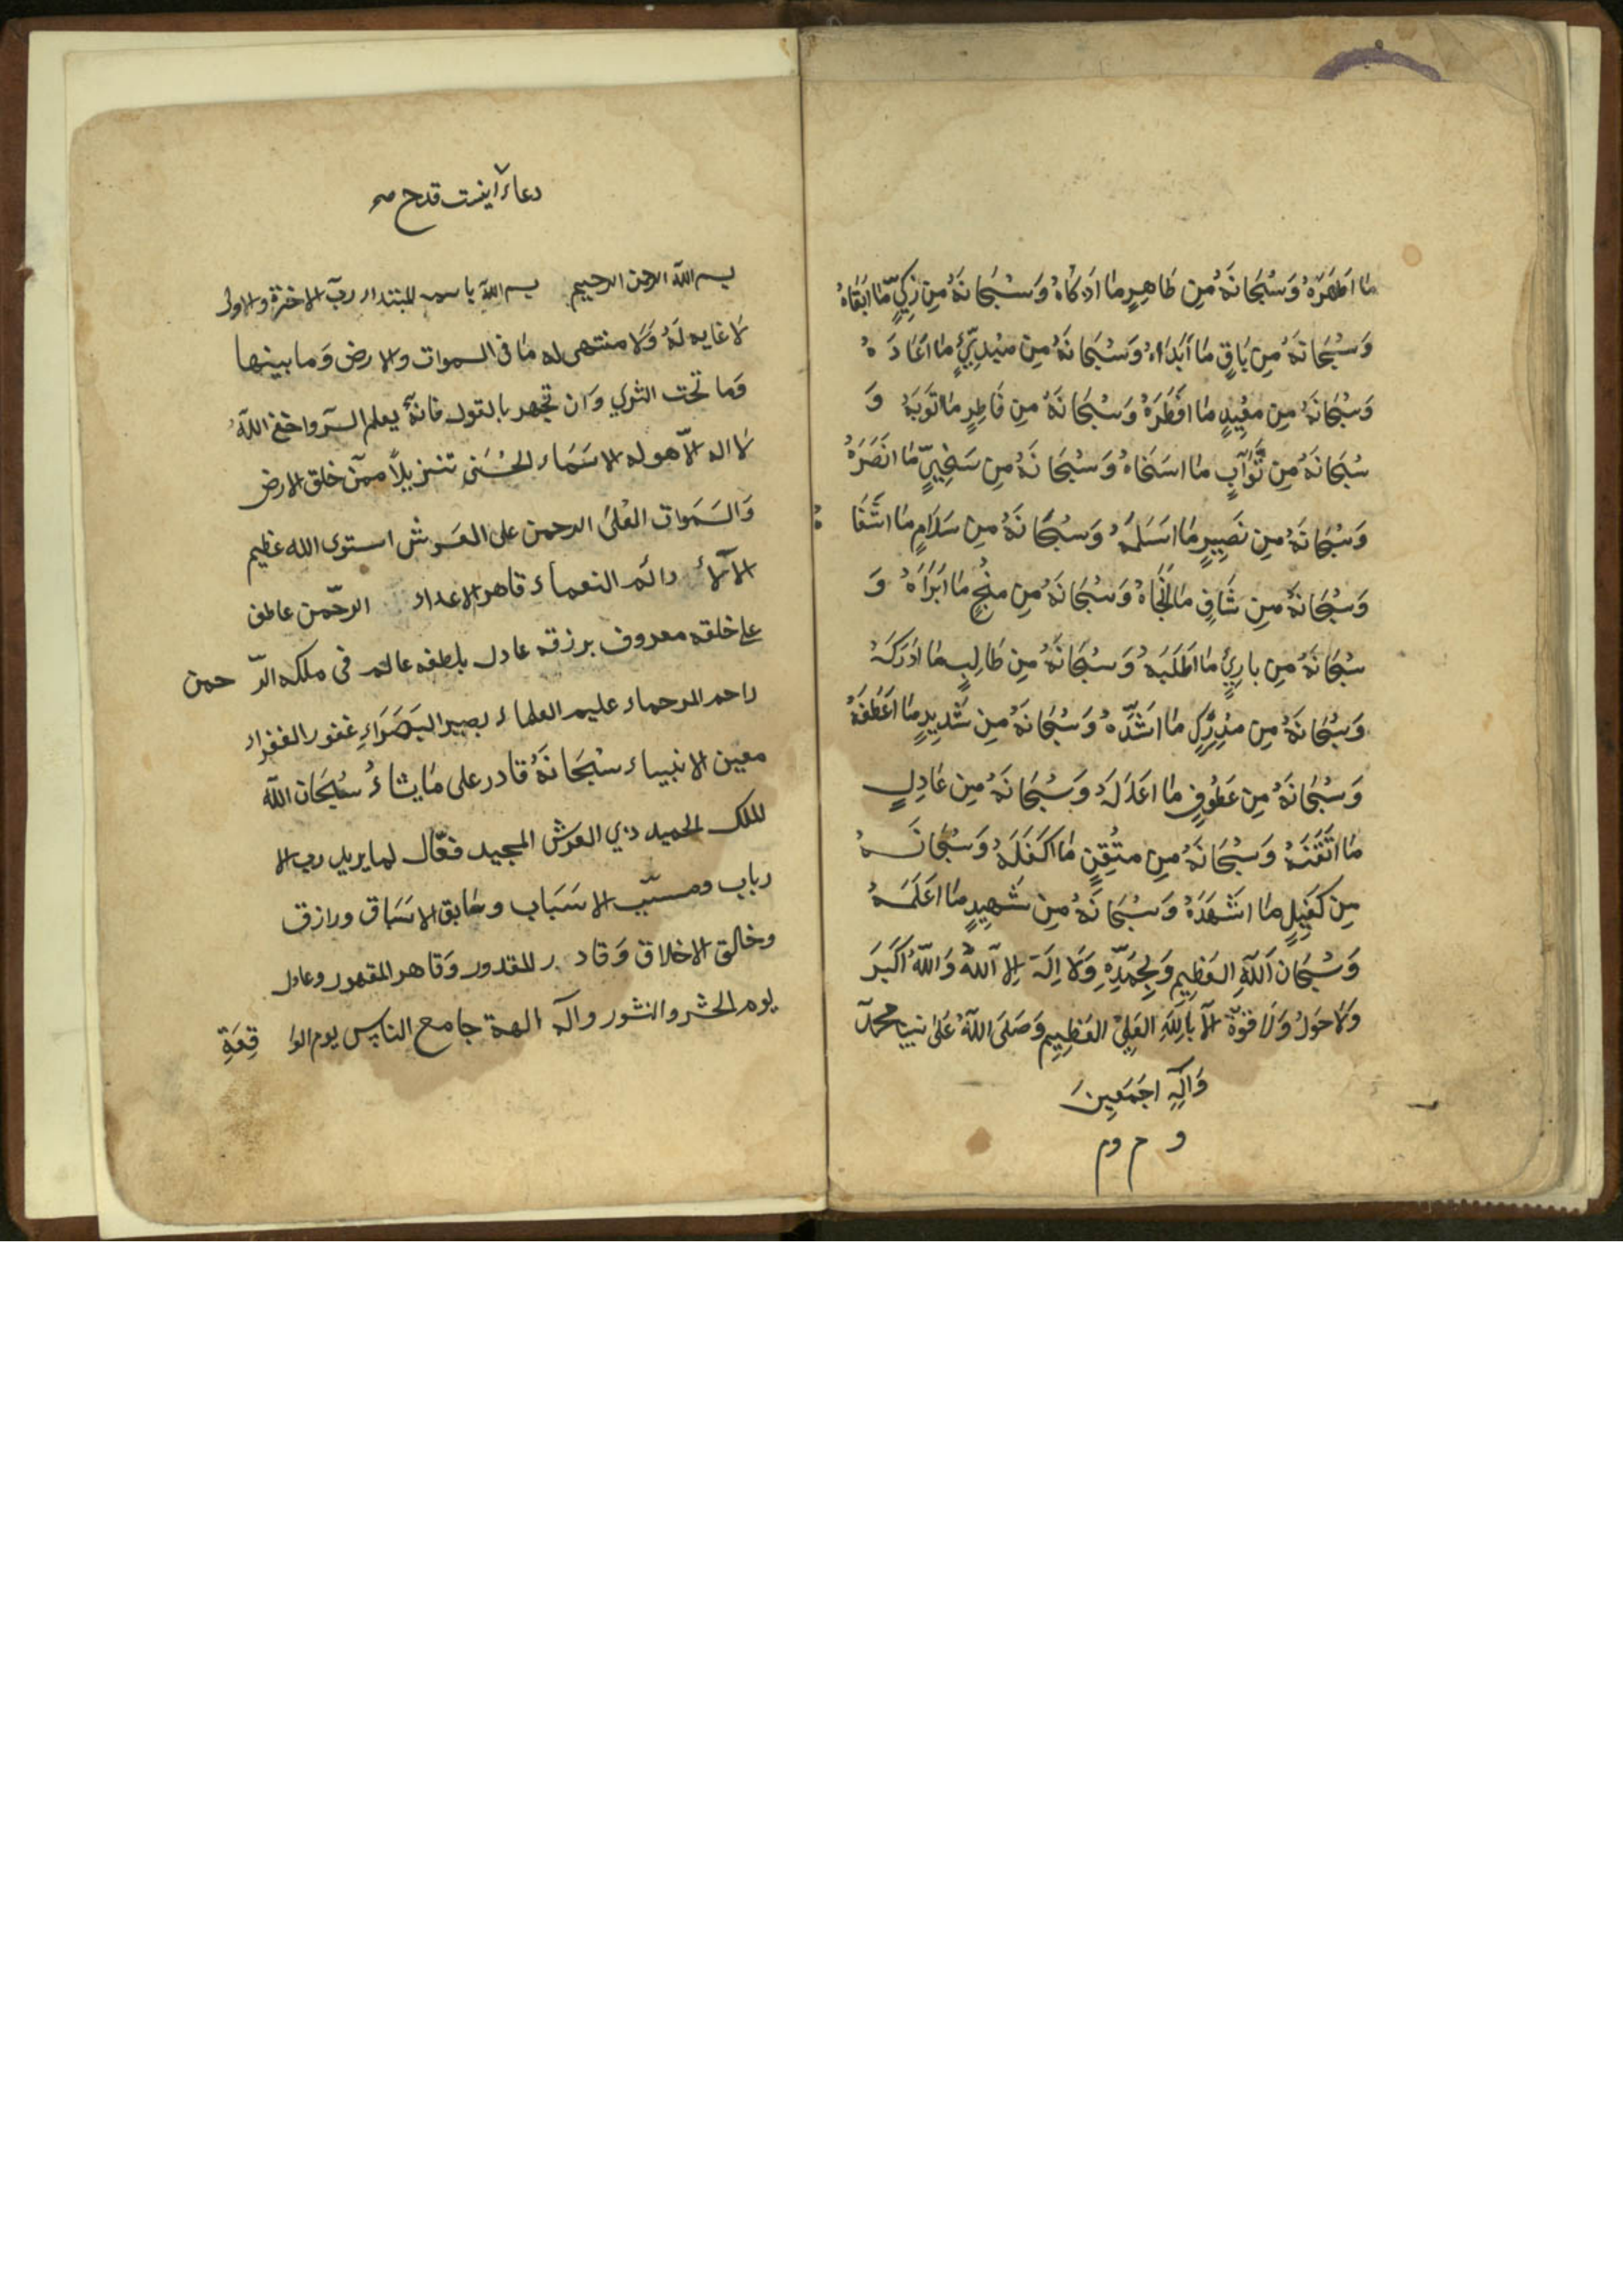 مَا اَطْهَرَهُ وَسُبْحَانَهُ مِن طَاهِرٍ مَا اَذْكَاهُ وَسُبْحَانَهُ مِن زَكِيٍّ مَّا اَبْقَاهُ
وَسُبْحَانَهُ مِن بَاقٍ مَا اَبْدَاءهُ وَسُبْحَانَهُ مِن مُبْدِيٍّ مَا اَعَادَهُ
وَسُبْحَانَهُ مِن مُعِيدٍ مَا اَفْطَرَهُ وَسُبْحَانَهُ مِن فَاطِرٍ مَا تَوَبَهُ وَ
سُبْحَانَهُ مِن تَوَّابٍ مَا اسَخَاهُ وَسُبْحَانَهُ مِن سَخِيٍّ مَا انصَرَهُ
وَسُبْحَانَهُ مِن نَصِيرٍ مَا اَسَلَمَهُ وَسُبْحَانَهُ مِن سَلَامٍ مَا اشَفَاهُ
وَسُبْحَانَهُ مِن شَافٍ مَا اَنْجَاهُ وَسُبْحَانَهُ مِن مُنْجٍ مَا اَبَرَاَهُ وَ
سُبْحَانَهُ مِن بارِيٍ مَا اَطْلَبَهُ وَسُبْحَانَهُ مِن طَالِبٍ مَا ادْرَكَهُ
وَسُبْحَانَهُ مِن مُدْرِكٍ مَا اشَدَّهُ وَسُبْحَانَهُ مِن شَدِيدٍ مَا اَعْطَفَهُ
وَسُبْحَانَهُ مِن عَطُوفٍ مَا اعَدَلَهُ وَسُبْحَانَهُ مِن عَادِلٍ
مَا اَتْقَنَهُ وَسُبْحَانَهُ مِن مُتْقِنٍ مَا اَكْفَلَهُ وَسُبْحَانَهُ
مِن كَفِيلٍ مَا اشَهَدَهُ وَسُبْحَانَهُ مِن شَهِيدٍ مَا اعَلَمَهُ
وَسُبْحَان اَللّهِ العَظِيمِ وَبِحَمْدِهِ وَلَا اِلَهَ اِلا اَللهُ وَاللّهُ اَكْبَرَ
وَلَا حَوْلُ وَلَا قُوَّةَ اِلّا بِاللّهِ العَلِيِّ العَظِيمِ وَصَلَى اللّهُ عَلىٰ نبينا محمد
وَآلِهِ اجَمَعِينَ
دعاء اينست قدح
بسم الله الرحمن الرحيم بسم الله المبتداء رب الاخرة والاولى
لا غايه لَهُ وَلَا منتهى له مَا فى السموات والارض وَما بينها
وَما تحت الثري وَان تجهر بالقول فانهٌ يعلم السر واخفى اللهُ
لا اله الّا هو له الاسَمَاء الحُسْنى تنزيلاً ممن خلق الارض
وَالسَمَوات العُلىٰ الرحمن على العَرش استوى الله عظيم
الآلاءُ دائم النعماء قاهر الاعداء الرحّمن عاطف
على خلقه معروف برزقه عادل بلطفه عالم فى ملكه الرّ حمن
راحم الرحماء عليم العلماء بصير البَصَرَاءِ غفور الغفراء
معين الانبياء سُبْحَانَهُ قادر على مَا يشاءُ سُبْحَان الله
الملك الحميد ذي العَرش المجيد فعّال لما يريد رب الا
رباب ومسبّب الاسَبَاب وسَابق الاسَبَاق ورازق
وخالق الاخلاق وَقادر المقدور وَقاهر المقهور وعادل
يوم الحشر والنشور واله الهة جامع الناس يوم الوا قِعَةِ